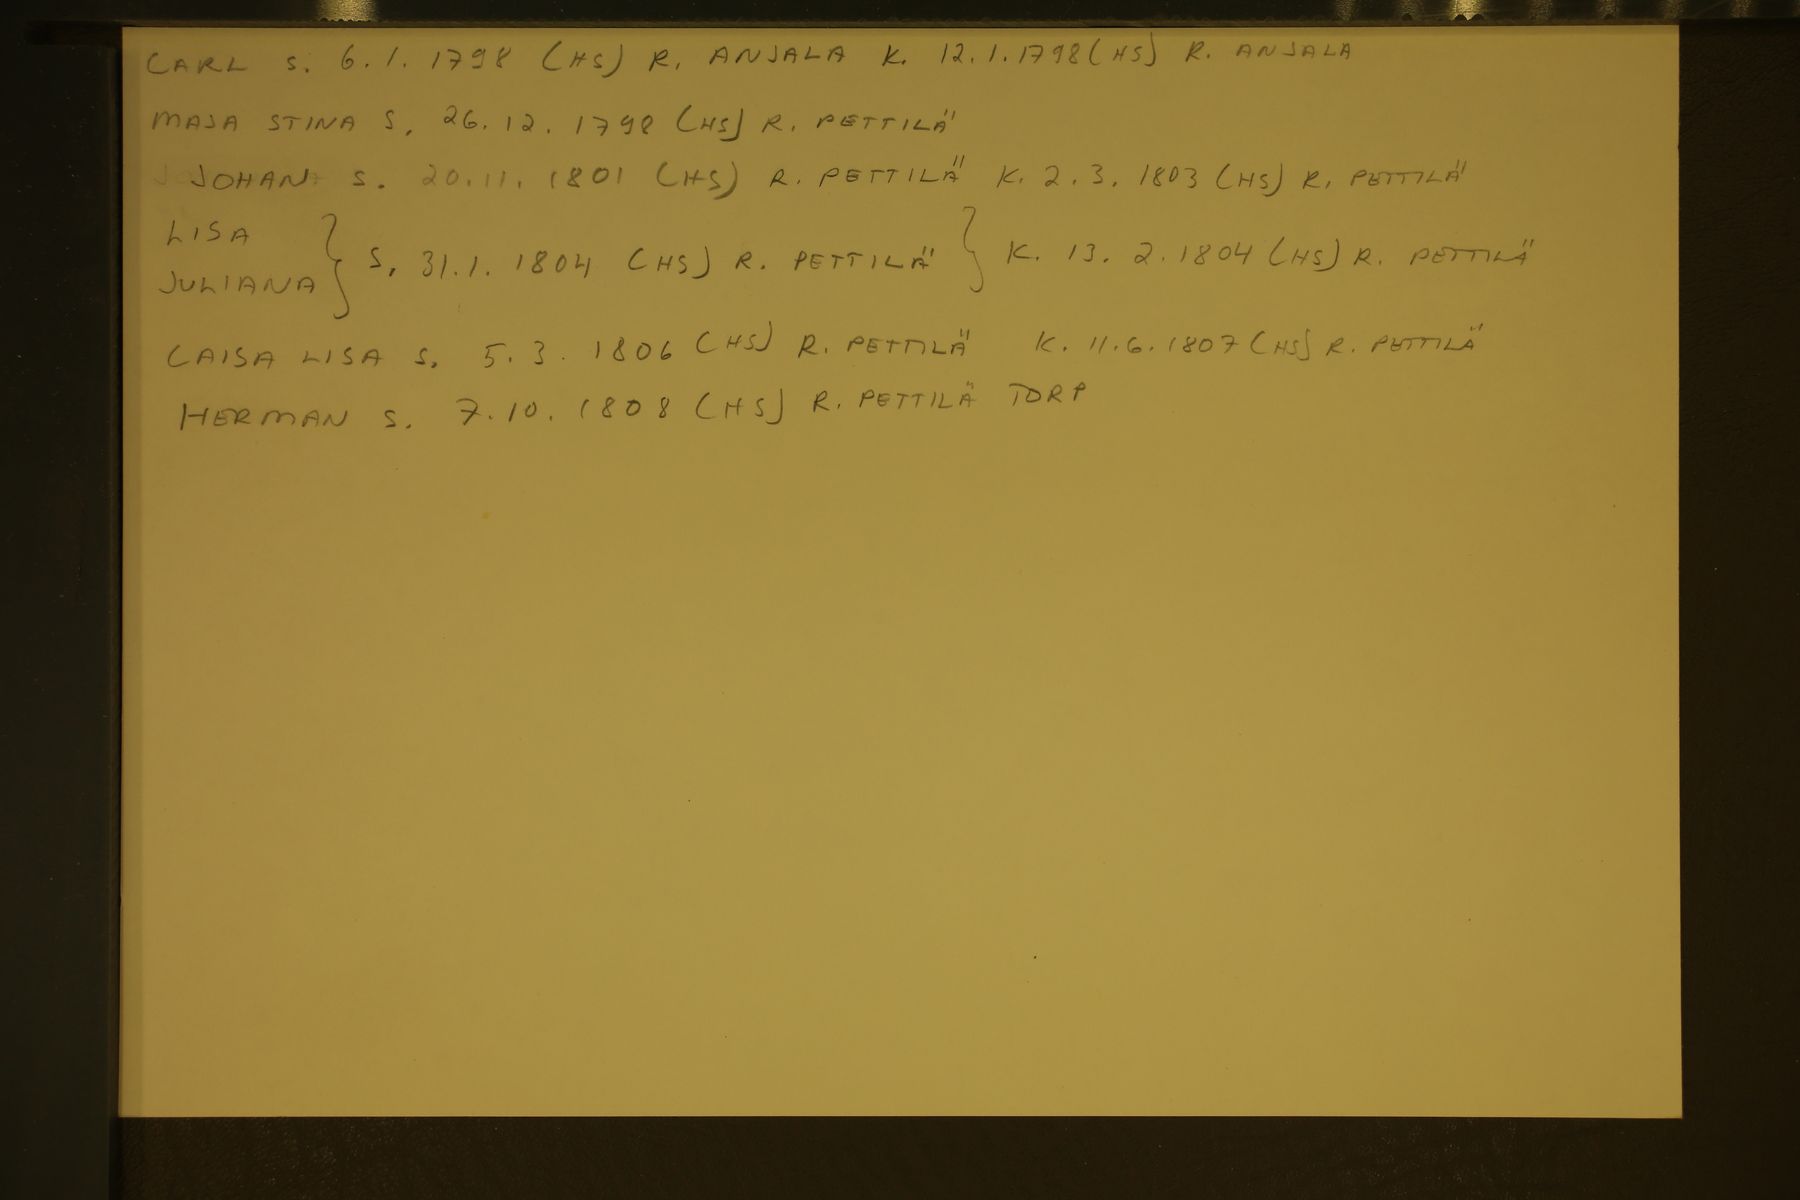 CARL S. 6.1.1798 (HS) R. ANJALA K. 12.1.1798 (HS) R. ANJALA
MAJA STINA S. 26.12.1798 (HS) R. PETTILÄ
JOHAN S. 20.11.1801 (HS) R. PETTILÄ K. 2.3.1803 (HS) R. PETTILÄ
LISA
JULIANA } S. 31.1.1804 (HS) R. PETTILÄ } K. 13.2.1804 (HS) R. PETTILÄ
CAISA LISA S. 5.3.1806 (HS) R. PETTILÄ K. 11.6.1807 (HS) R. PETTILÄ
HERMAN S. 7.10.1808 (HS) R. PETTILÄ TORP